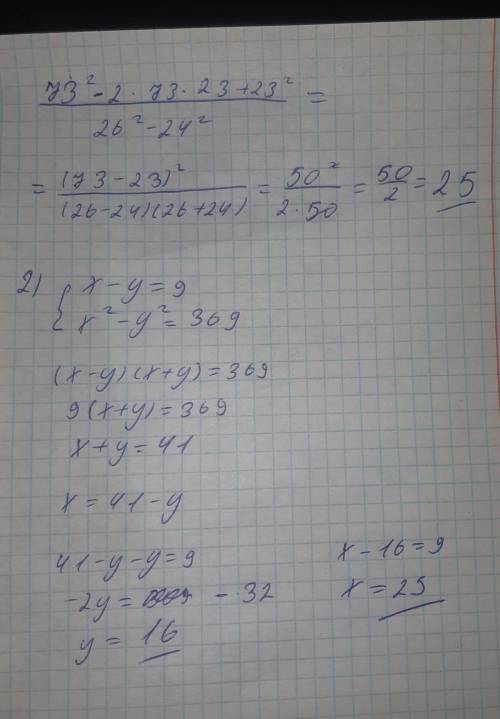 73² - 2 · 73 · 23 + 23² / 26² - 24² =
= (73 - 23)² / (26 - 24)(26 + 24) = 50² / 2 · 50 = 50 / 2 = 25
2) { x - y = 9
x² - y² = 369
(x - y)(x + y) = 369
9(x + y) = 369
x + y = 41
x = 41 - y
41 - y - y = 9
-2y = - 32
y = 16
x - 16 = 9
x = 25